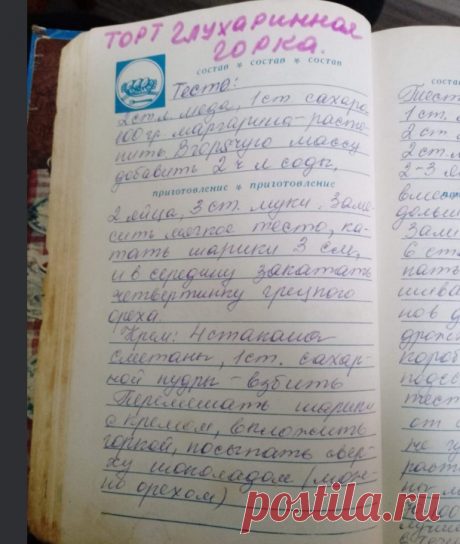 ТОРТ ГЛУХАРИННАЯ
ГОРКА.
состав * состав * состав
Теста:
2 ст л меда, 1 ст. сахара
100 гр маргарина – расто-
пить В горячую массу
добавить 2 ч л соды,
приготовление * приготовление
2 яйца, 3 ст. муки. Заме-
сить мягкое тесто, ка-
тать шарики 3 см,
и в середину закатать
четвертинку грецкого
ореха
Крем: 4 стакана
сметаны, 1 ст. сахар-
ной пудры – взбить
Перемешать шарики
с кремом, выложить
горкой, посыпать свер-
ху шоколадом (мож-
но орехом)
соста
Тест
1 ст.
2 ст
2 ст л
2-3 л
вмес
дольш
Зам
6 ст
пать
нов д
дрож
короб
тест
от
posticila.ru